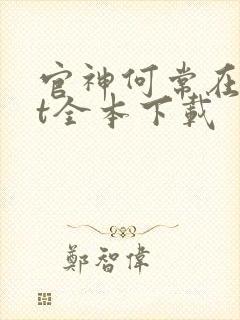 官神何常在t
t全本下载
鄭智偉